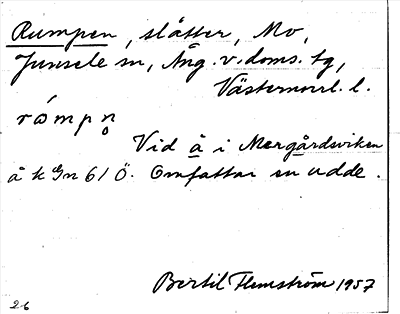 Rumpen, slåtter, Mo,
Junsele sn, Ång. v. doms. tg,
Västernorrl. l.
rómpn̥
Vid å i Morgårdsviken
å k Gn 61 Ö. Omfattar en udde.
Bertil Flemström 1957
26